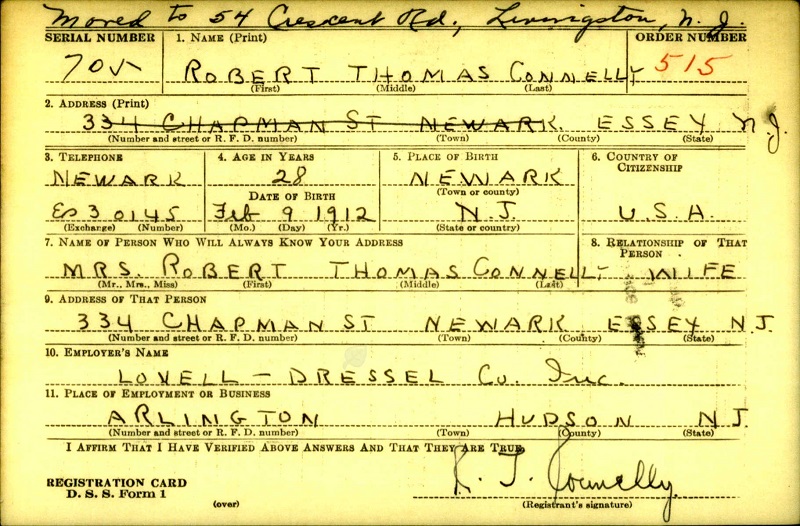 Moved to 54 Crescent Rd., Livingston, N. J.
SERIAL NUMBER 1. NAME (Print) ORDER NUMBER
705 ROBERT THOMAS CONNELLY 515
(First) (Middle) (Last)
2. ADDRESS (Print)
334 CHAPMAN ST NEWARK ESSEY N.J.
(Number and street or R. F. D. number) (Town) (County) (State)
3. TELEPHONE 4. AGE IN YEARS 5. PLACE OF BIRTH 6. COUNTRY OF CITIZENSHIP
NEWARK 28 NEWARK
DATE OF BIRTH (Town or county)
Es 3 0145 Feb 9 1912 N.J. U.S.A.
(Exchange) (Number) (Mo.) (Day) (Yr.) (State or country)
7. NAME OF PERSON WHO WILL ALWAYS KNOW YOUR ADDRESS 8. RELATIONSHIP OF THAT PERSON
MRS. ROBERT THOMAS CONNELLY WIFE
(Mr., Mrs., Miss) (First) (Middle) (Last)
9. ADDRESS OF THAT PERSON
334 CHAPMAN ST NEWARK ESSEY N.J.
(Number and street or R. F. D. number) (Town) (County) (State)
10. EMPLOYER'S NAME
LOVELL - DRESSEL Co. Inc.
11. PLACE OF EMPLOYMENT OR BUSINESS
ARLINGTON HUDSON NJ
(Number and street or R. F. D. number) (Town) (County) (State)
I AFFIRM THAT I HAVE VERIFIED ABOVE ANSWERS AND THAT THEY ARE TRUE.
R. T. Connelly.
REGISTRATION CARD
D. S. S. Form 1 (over) (Registrant's signature)